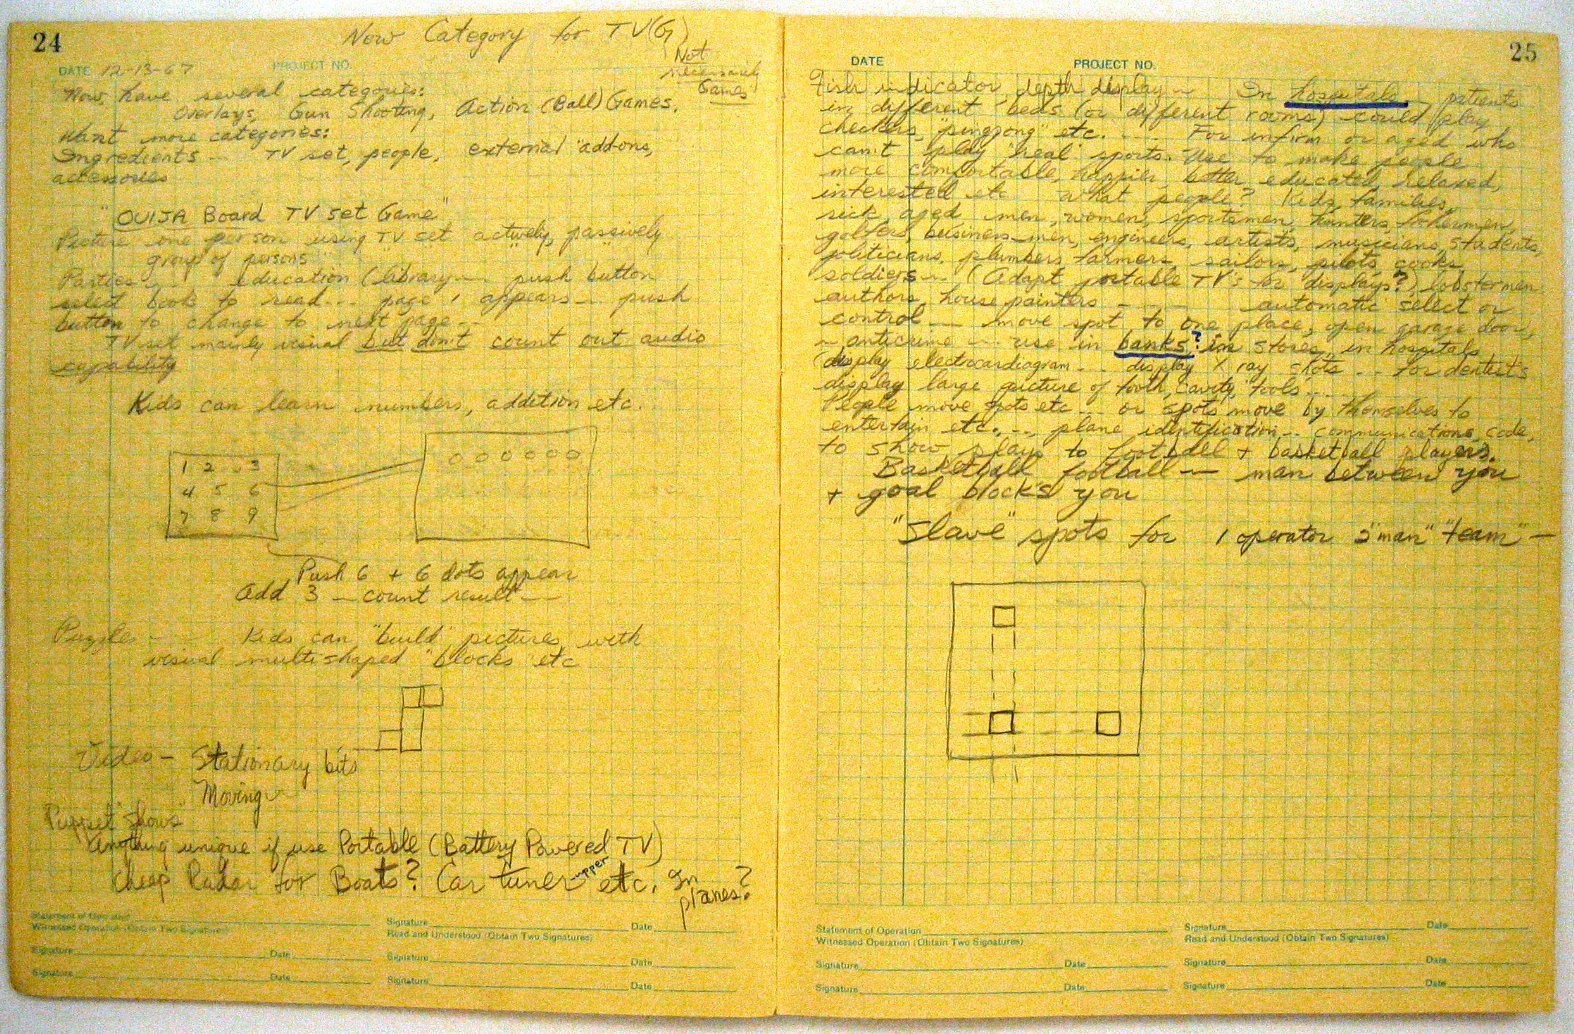 24
New Category for TV(G)
Not
necessarily
Games
DATE 12-13-67 PROJECT NO.
Now have several categories:
Overlays, Gun Shooting, Action (Ball) Games.
Want more categories:
Ingredients -- TV set, people, external "add-ons,
accessories
"OUIJA Board TV set Game"
Picture one person using TV set actively, passively
group of persons
Parties, education (library -- push button
select book to read... page 1 appears -- push
button to change to next page --
TV set mainly visual but don't count out audio
capability
Kids can learn numbers, addition etc.
1 2 3
4 5 6
7 8 9
Push 6 + 6 dots appear
Add 3 -- count result --
Puzzles -- Kids can "build" pictures with
visual multishaped "blocks" etc
Video - Stationary bits
Moving
Puppet "Shows"
Anything unique if use Portable (Battery Powered TV)
Cheap Radar for Boats? Car tuner upper etc. In
planes?
Statement of Operation
Witnessed Operation (Obtain Two Signatures)
Signature Date
Signature Date
Signature Date
Read and Understood (Obtain Two Signatures)
Signature Date
Signature Date
25
DATE PROJECT NO.
Fish indicator depth display -- In hospitals, patients
in different beds (or different rooms) could play
checkers, "pingpong" etc. -- For infirm or aged who
can't play "real" sports. Use to make people
more comfortable, happier, better educated, relaxed,
interested etc what people? Kids, families,
sick, aged men, women, sportsmen, hunters, fishermen,
golfers, business men, engineers, artists, musicians, students,
politicians, plumbers, farmers, sailors, pilots, cooks
soldiers -- (Adapt portable TV's for "displays"?) lobstermen
authors, house painters - - - - automatic select or
control -- move spot to one place, open garage door,
- anticrime -- use in banks? in stores, in hospitals
(display electrocardiogram... display X ray shots... for dentists
display large picture of tooth, cavity, tools...
People move spots etc... or spots move by themselves to
entertain etc. --, plane identification... communications, code,
to show plays to football + basketball players.
Basketball football -- man between you
+ goal blocks you
"Slave" spots for 1 operator 2 "man" "team" -
Statement of Operation
Witnessed Operation (Obtain Two Signatures)
Signature Date
Signature Date
Signature Date
Read and Understood (Obtain Two Signatures)
Signature Date
Signature Date